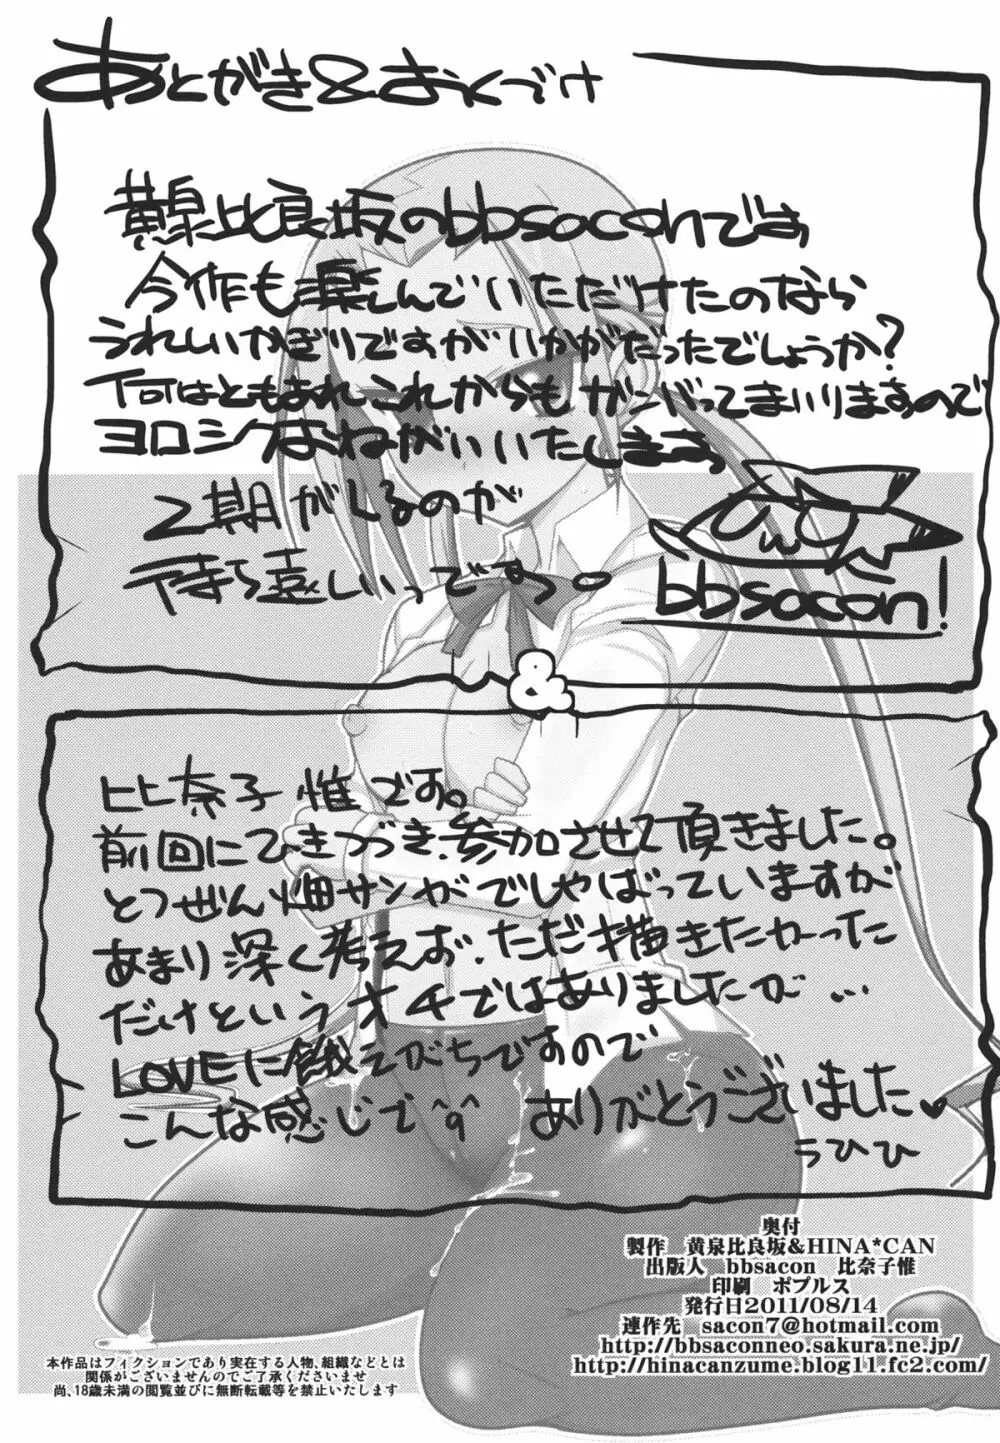 あとがき&おくづけ
黄泉比良坂のbbsaconです
今作も楽しんでいただけたのなら
うれしいかぎりですがいかがだったでしょうか?
何はともあれこれからもガンバってまいりますので
ヨロシクおねがいいたします。
2期がくるのが
待ち遠しいっですっ。
bbsacon!
&
比奈子惟です。
前回にひきつづき、参加させて頂きました。
とつぜん畑サンがでしゃばっていますが
あまり深く考えず、ただ描きたかった
だけというオチではありましたが…
LOVEに餓えがちですので
こんな感じで^q^ ありがとうございました♥
うひひ
奥付
製作 黄泉比良坂&HINA*CAN
出版人 bbsacon 比奈子惟
印刷 ポプルス
発行日2011/08/14
連作先 sacon7@hotmail.com
http://bbsaconneo.sakura.ne.jp/
http://hinacanzume.blog11.fc2.com/
本作品はフィクションであり実在する人物、組織などとは
関係がございませんのでご了承くださいませ
尚、18歳未満の閲覧並びに無断転載等を禁止いたします